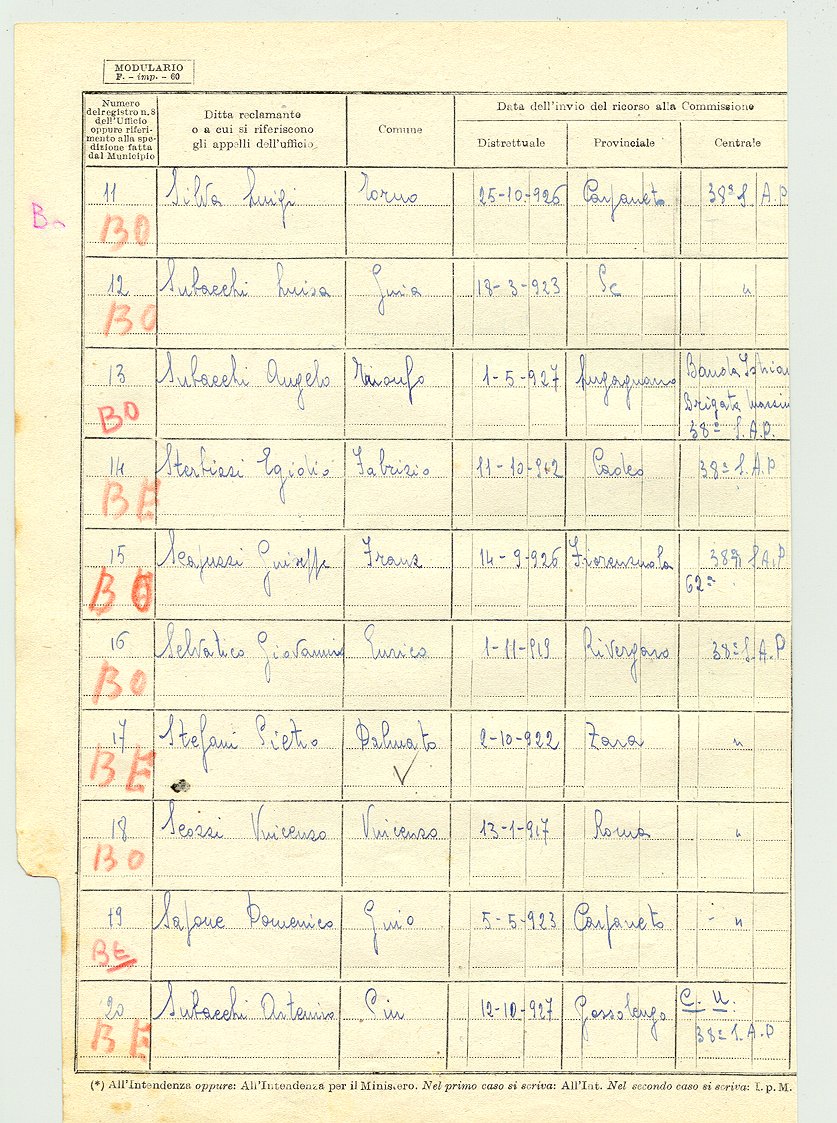 MODULARIO
F. - imp. - 60
Numero del registro n. 8 dell'Ufficio oppure riferimento alla spedizione fatta dal Municipio
Ditta reclamante o a cui si riferiscono gli appelli dell'ufficio
Comune
Data dell'invio del ricorso alla Commissione
Distrettuale Provinciale Centrale
11 Silva Luigi Torno 25-10-926 Carpaneto 38ª S.A.P
BO
12 Subacchi Luisa Gina 18-3-923 Pc "
BO
13 Subacchi Angelo 1-5-927 Lugagnano Banda Istrian
Brigata
BO 38ª S.A.P.
14 Egidio Fabrizio 11-10-9 Cadeo 38ª S.A.P
BE
15 Scapuzzi Giuseppe Franz 14-9-926 Fiorenzuola 38ª S.A.P
BO 62ª
16 Selvatico Giovanni Enrico 1-11-919 Rivergaro 38ª S.A.P
BO
17 Stefani Pietro Dalmato 2-10-922 Zara "
BE
18 Scozzi Vincenzo Vincenzo 13-1-917 Roma "
BO
19 Domenico Gino 5-5-923 Carpaneto - "
BE
20 Subacchi Artemio 12-10-927 Gossolengo C. U.
BE 38ª S.A.P
(*) All'Intendenza oppure: All'Intendenza per il Ministero. Nel primo caso si scriva: All'Int. Nel secondo caso si scriva: I. p. M.